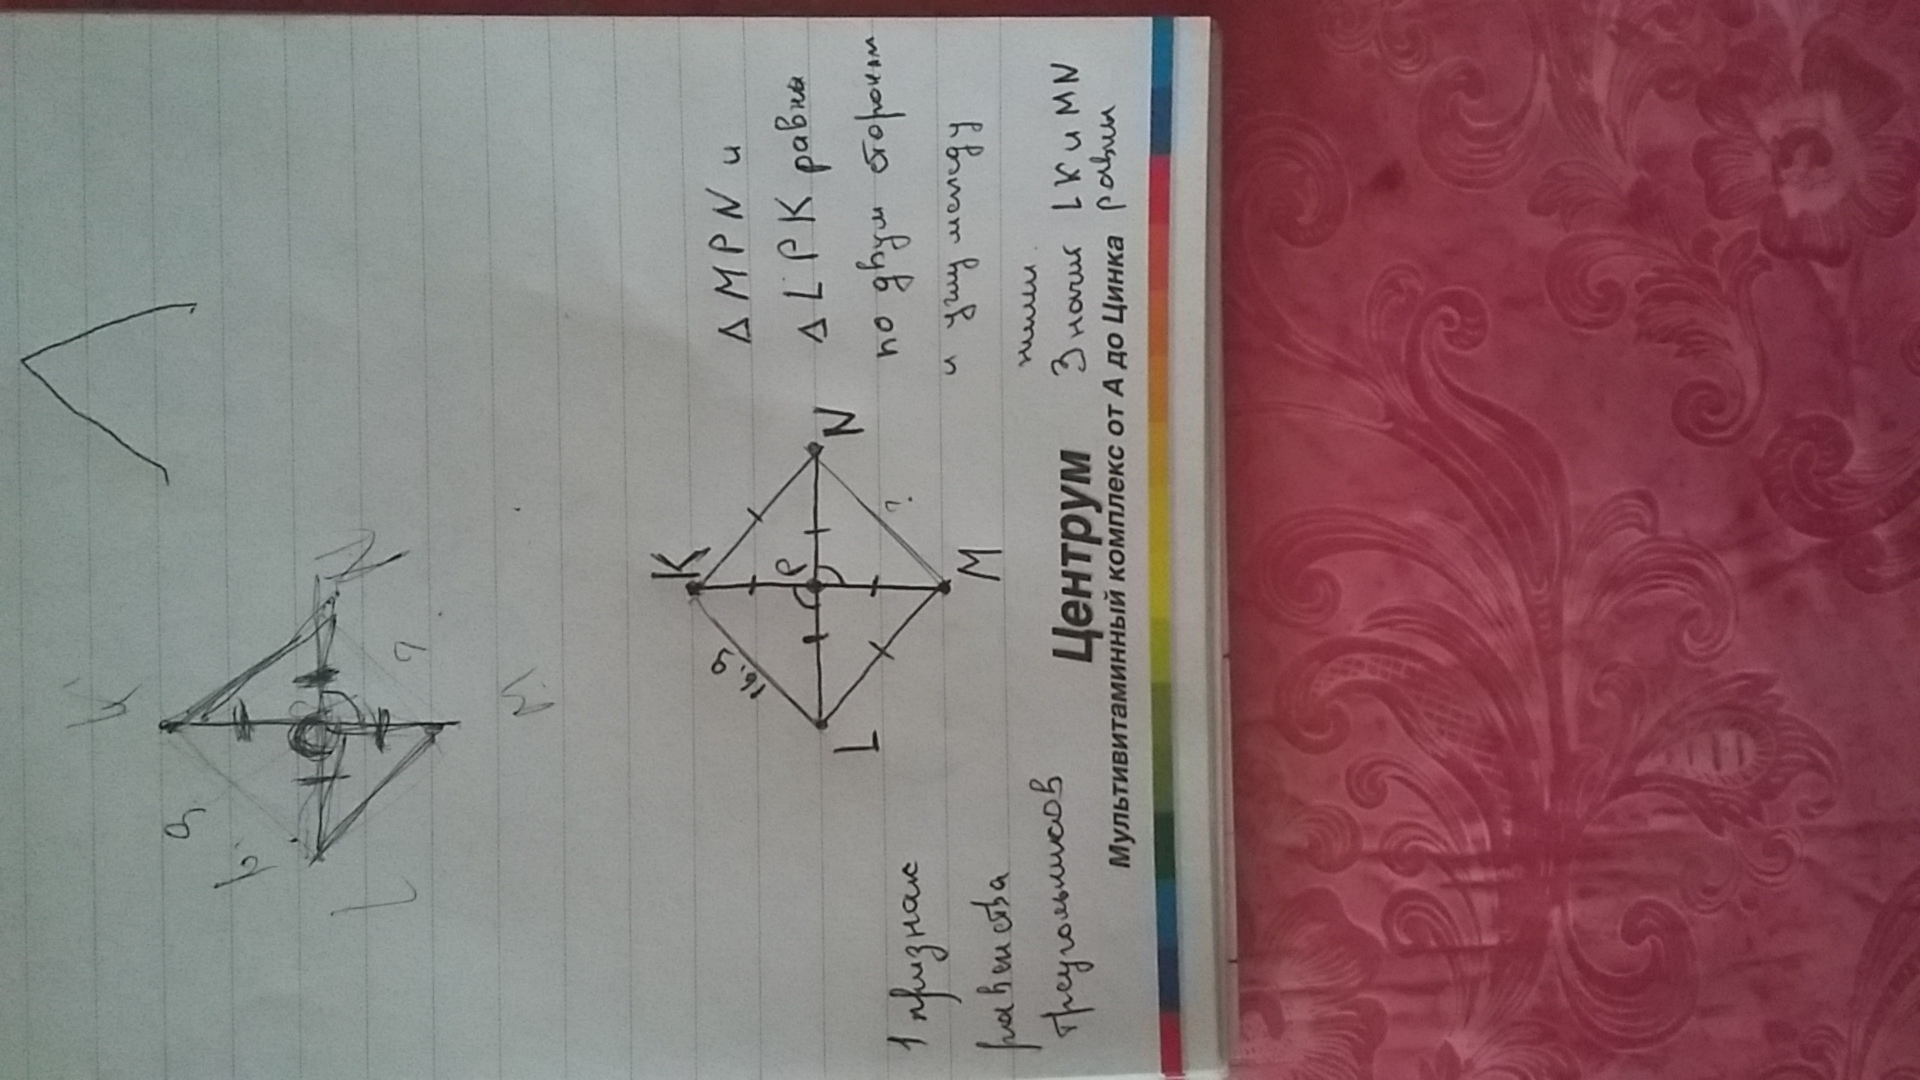 К
N
?
М
L
9
К
N
P
9
16.
L
М
?
Δ MPN и
Δ LPK равны
по двум сторонам
и углу между
ними.
Значит LK и MN
равны
1 признак
равенства
треугольников
Центрум
Мультивитаминный комплекс от А до Цинка